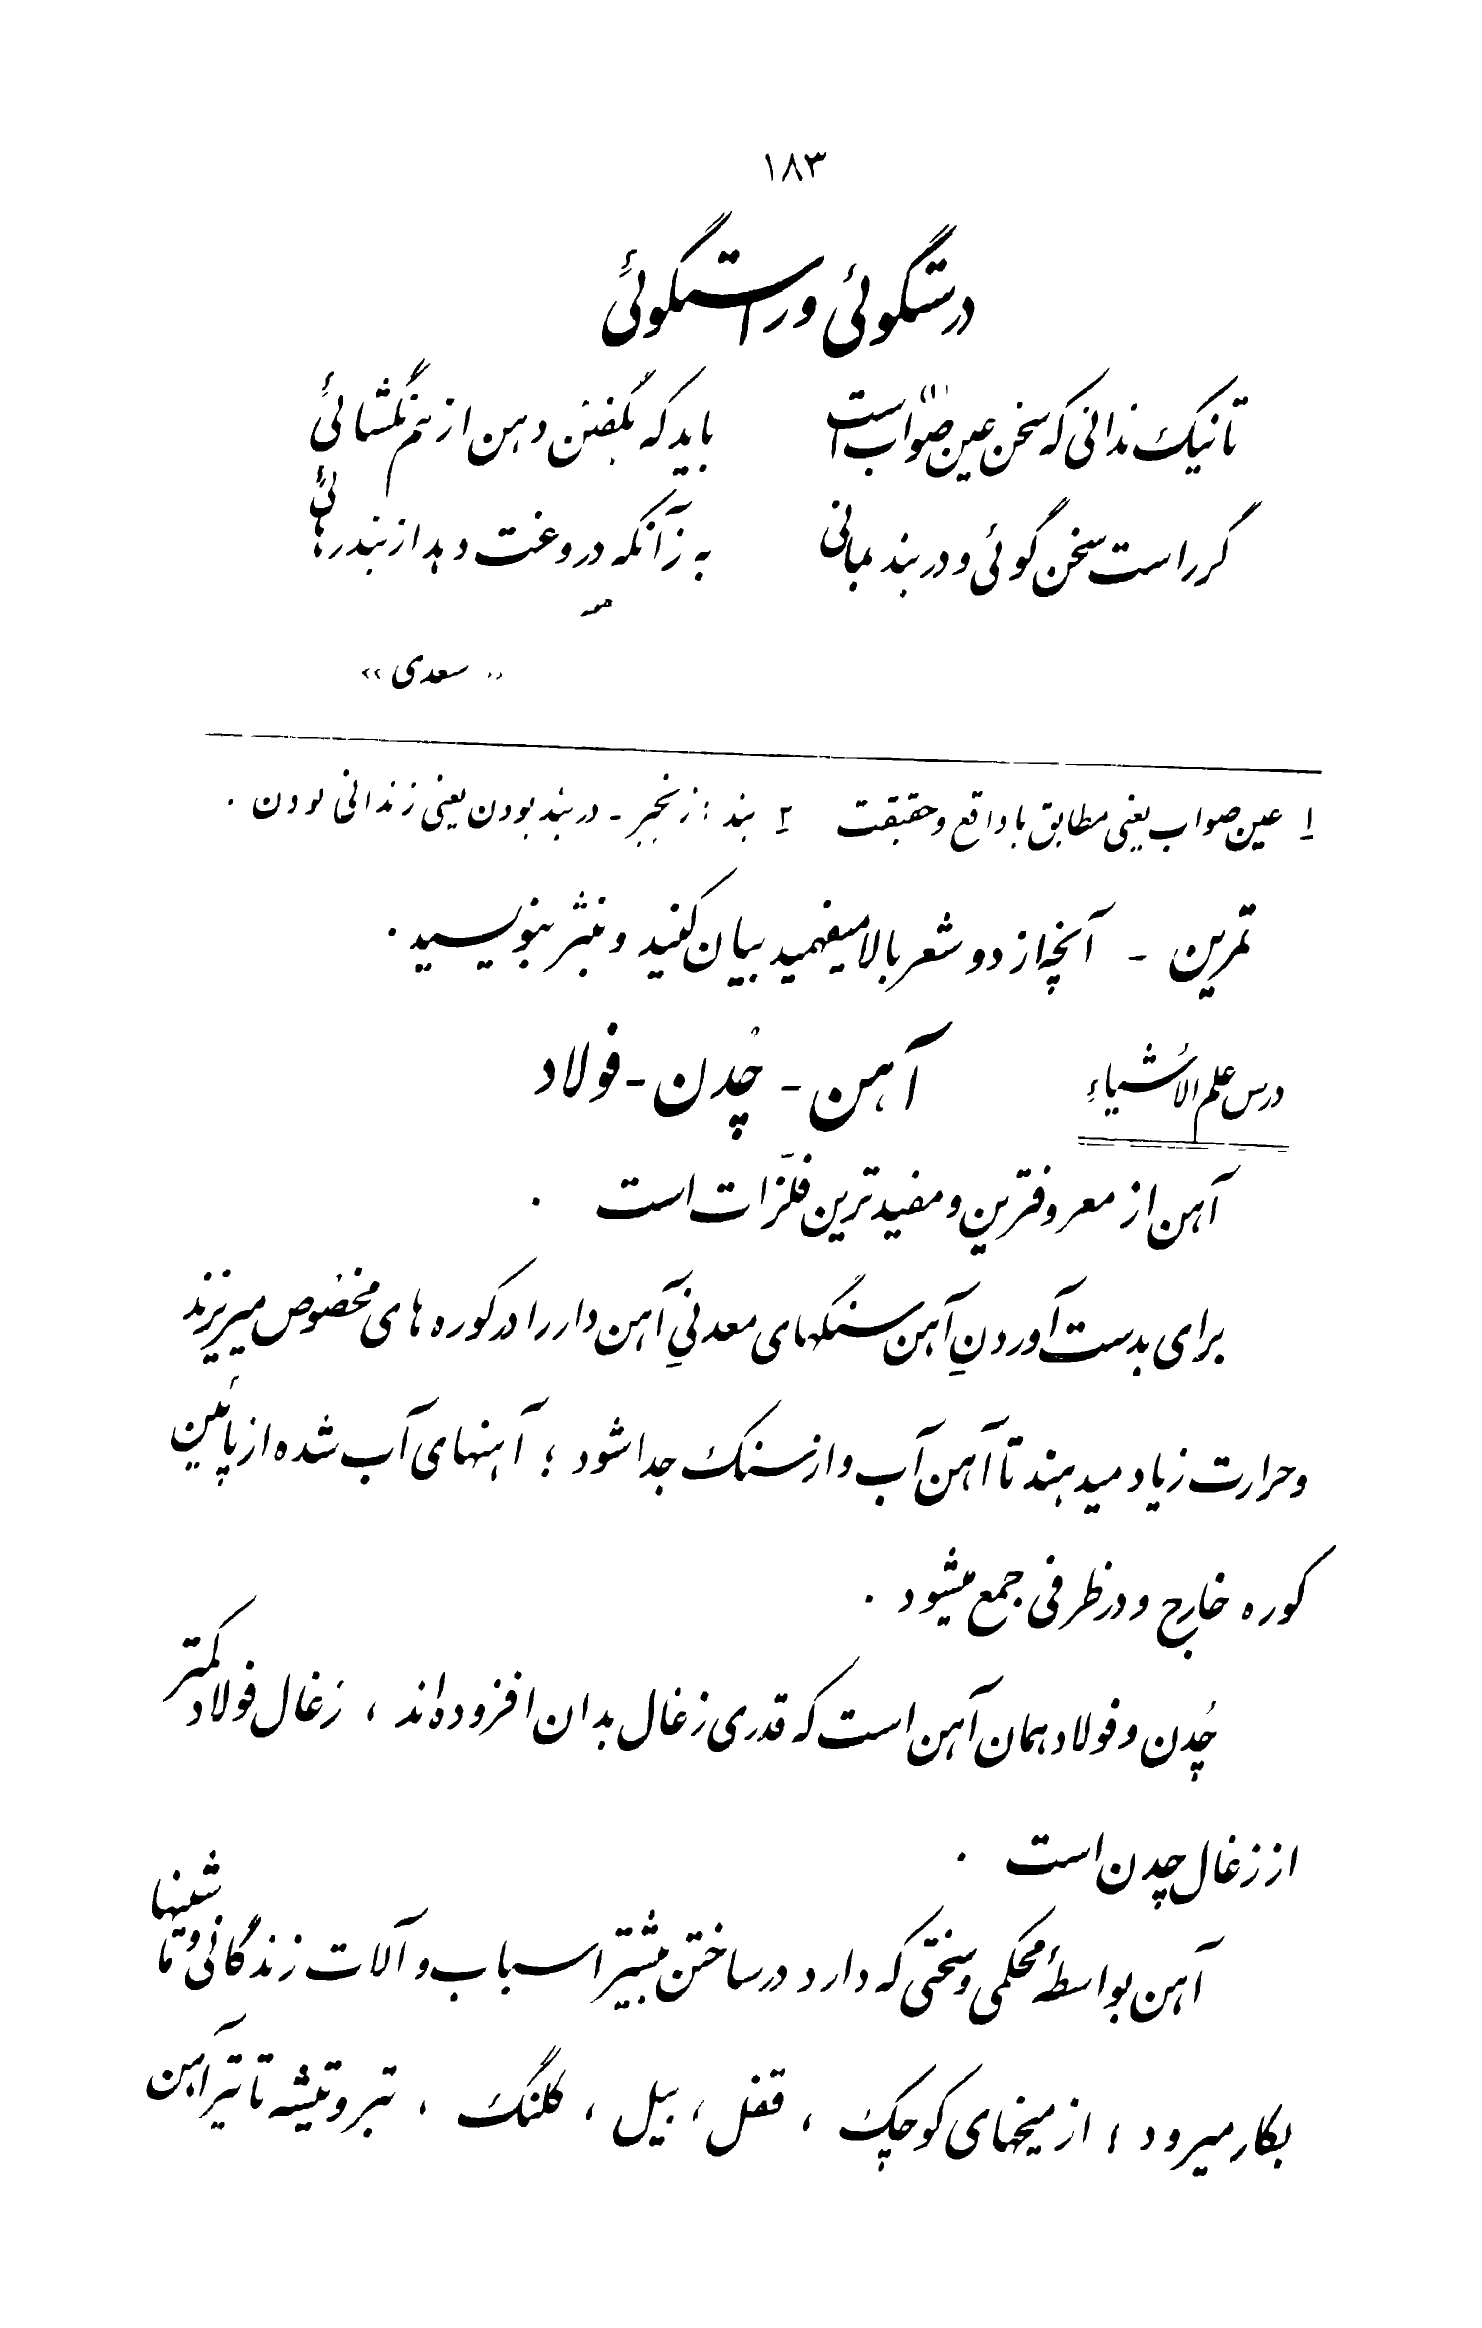 ۱۸۳
درستگوئی و راستگوئی
تا نیک ندانی که سخن عین صواب است (۱) باید که بگفتن دهن از هم نگشائی
گر راست سخن گوئی و در بند بمانی به زآنکه دروغت دهد از بند رهائی
«سعدی»
۱ عین صواب یعنی مطابق با واقع و حقیقت ۲ بند : زنجیر - در بند بودن یعنی زندانی بودن .
تمرین - آنچه از دو شعر بالا میفهمید بیان کنید و بنثر بنویسید .
درس علم الاشیاء آهن - چُدن - فولاد
آهن از معروفترین و مفیدترین فلزّات است .
برای بدست آوردنِ آهن سنگهای معدنیِ آهن دار را در کوره های مخصُوص میریزند
و حرارت زیاد میدهند تا آهن آب و از سنگ جدا شود ؛ آهنهای آب شده از پائین
کوره خارج و در ظرفی جمع میشود .
چُدن و فولاد همان آهن است که قدری زغال بدان افزوده‌اند ، زغال فولاد کمتر
از زغال چدن است .
آهن بواسطهٔ محکمی و سختی که دارد در ساختن بیشتر اسباب و آلات زندگانی و ماشینها
بکار میرود ؛ از میخهای کوچک ، قفل ، بیل ، کلنگ ، تبر و تیشه تا تیر آهن